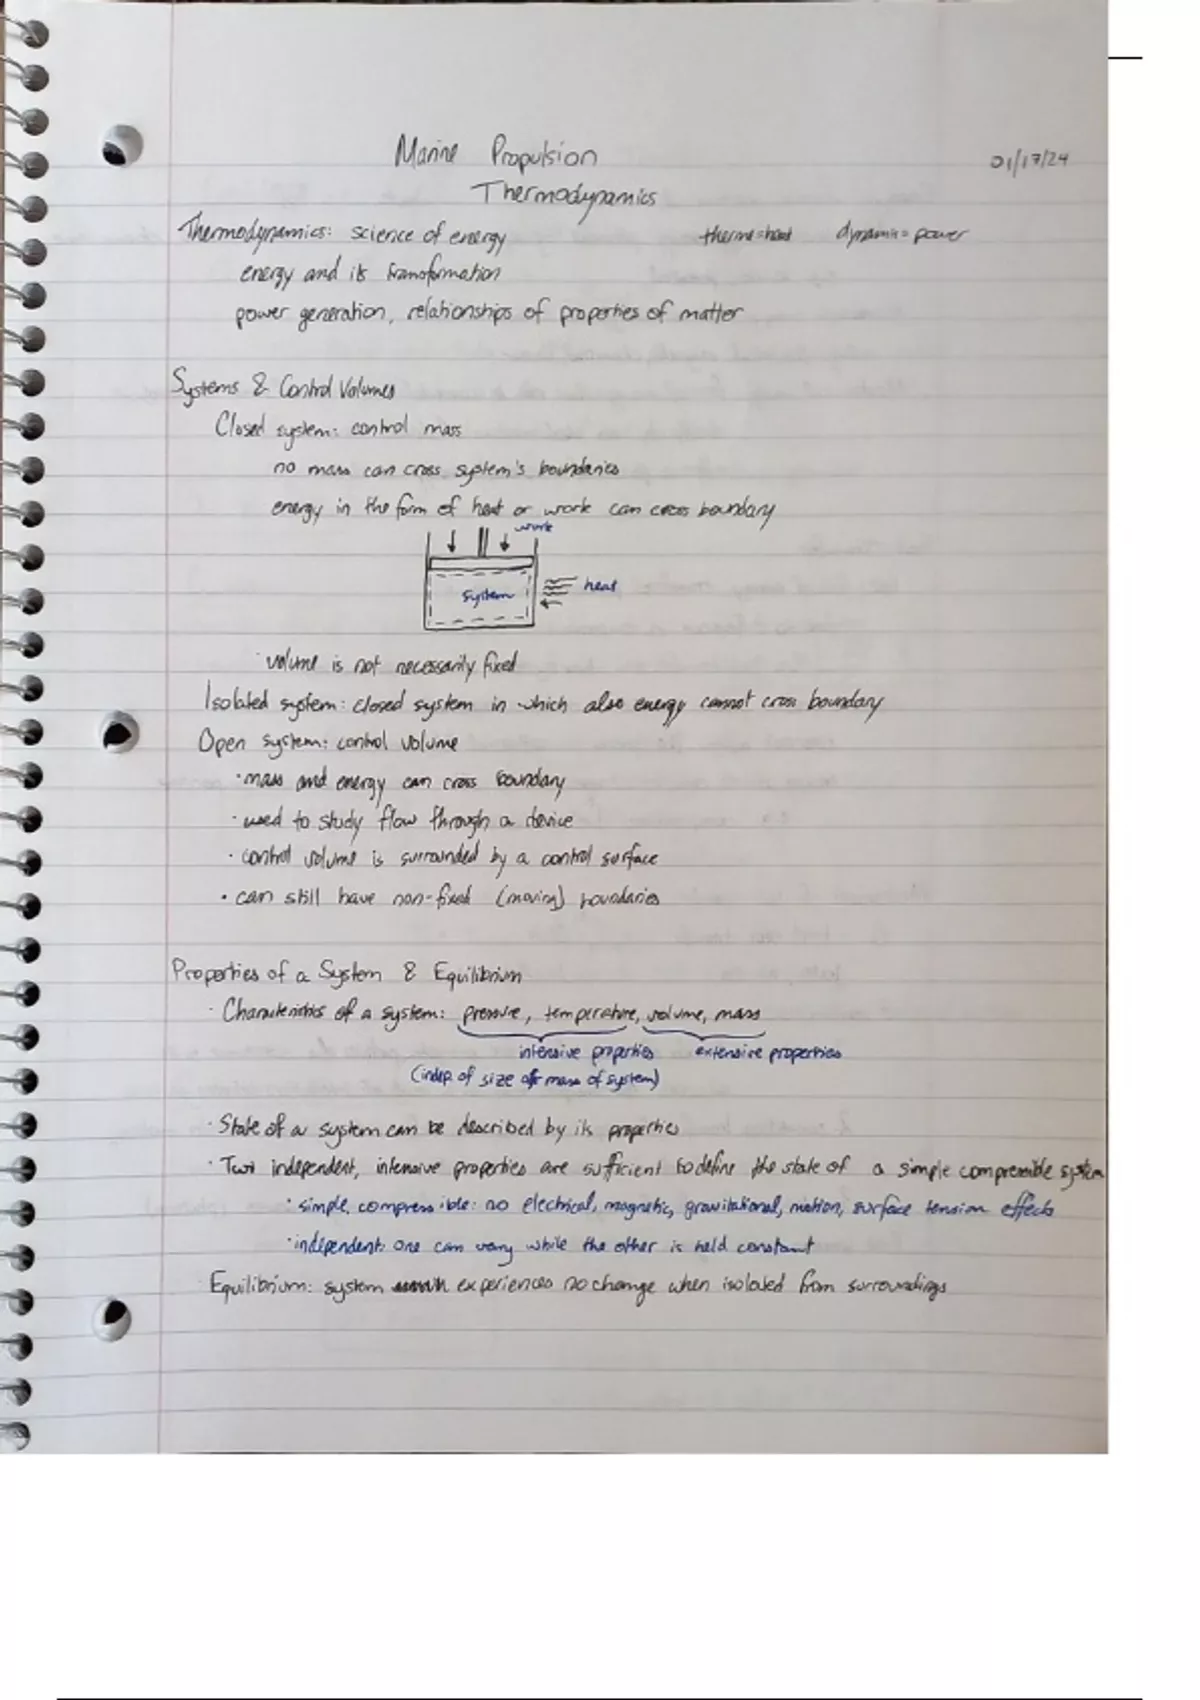 Marine Propulsion
01/17/24
Thermodynamics
Thermodynamics: science of energy
therme=heat dynamis=power
energy and its transformation
power generation, relationships of properties of matter
Systems & Control Volumes
Closed system: control mass
no mass can cross system's boundaries
energy in the form of heat or work can cross boundary
work
system
heat
volume is not necessarily fixed
Isolated system: closed system in which also energy cannot cross boundary
Open system: control volume
· mass and energy can cross boundary
· used to study flow through a device
· control volume is surrounded by a control surface
· can still have non-fixed (moving) boundaries
Properties of a System & Equilibrium
· Characteristics of a system: pressure, temperature, volume, mass
intensive properties extensive properties
(indep. of size or mass of system)
· State of a system can be described by its properties
· Two independent, intensive properties are sufficient to define the state of a simple compressible system
· simple, compressible: no electrical, magnetic, gravitational, motion, surface tension effects
· independent: one can vary while the other is held constant
Equilibrium: system experiences no change when isolated from surroundings